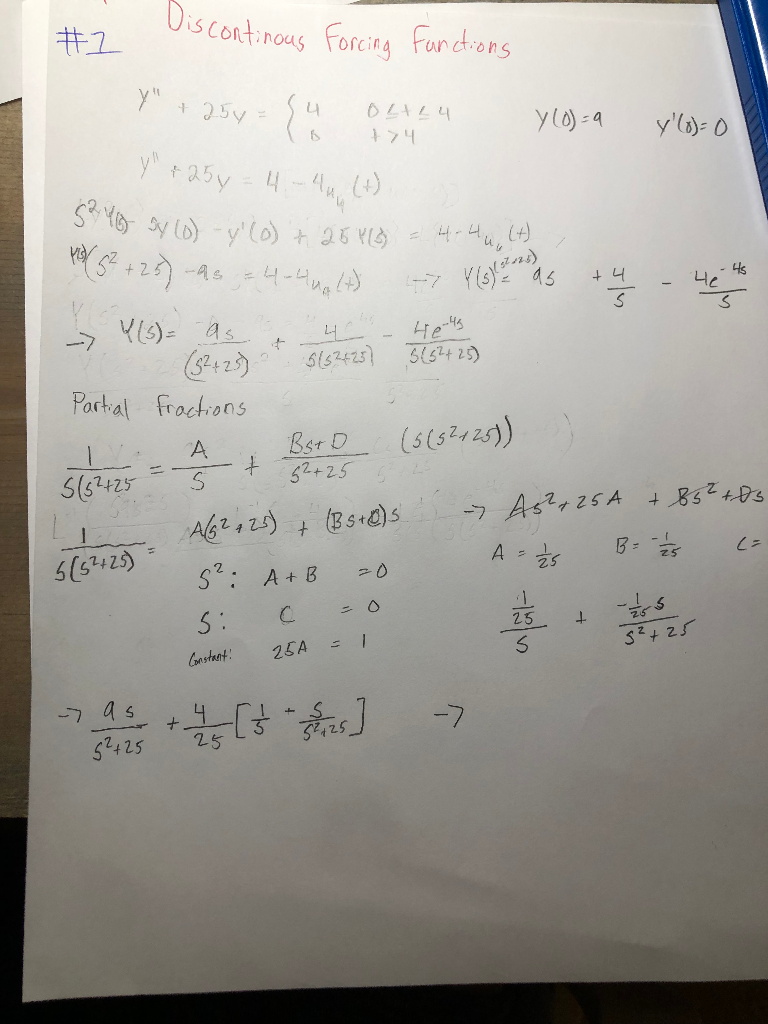 #1 Discontinous Forcing Functions
y'' + 25y = { 4 0 ≤ t ≤ 4 y(0)=9 y'(0)=0
0 t > 4
y'' + 25y = 4 - 4u₄(t)
s²Y(s) - sy(0) - y'(0) + 25Y(s) = 4 - 4u₄(t)
Y(s)(s² + 25) - 9s = 4 - 4u₄(t) → Y(s)(s²+25) = 9s + 4/s - 4e^-4s/s
→ Y(s) = 9s/(s²+25) + 4/s(s²+25) - 4e^-4s/s(s²+25)
Partial fractions
1/s(s²+25 = A/s + Bs+D/s²+25 (s(s²+25))
1/s(s²+25) = A(s²+25) + (Bs+D)s → As² + 25A + Bs² + Ds
s²: A + B = 0 A = 1/25 B = -1/25 C =
s: C = 0
Constant: 25A = 1 1/25/s + -1/25 s/s² + 25
→ 9s/s²+25 + 4/25 [1/s - s/s²+25] →